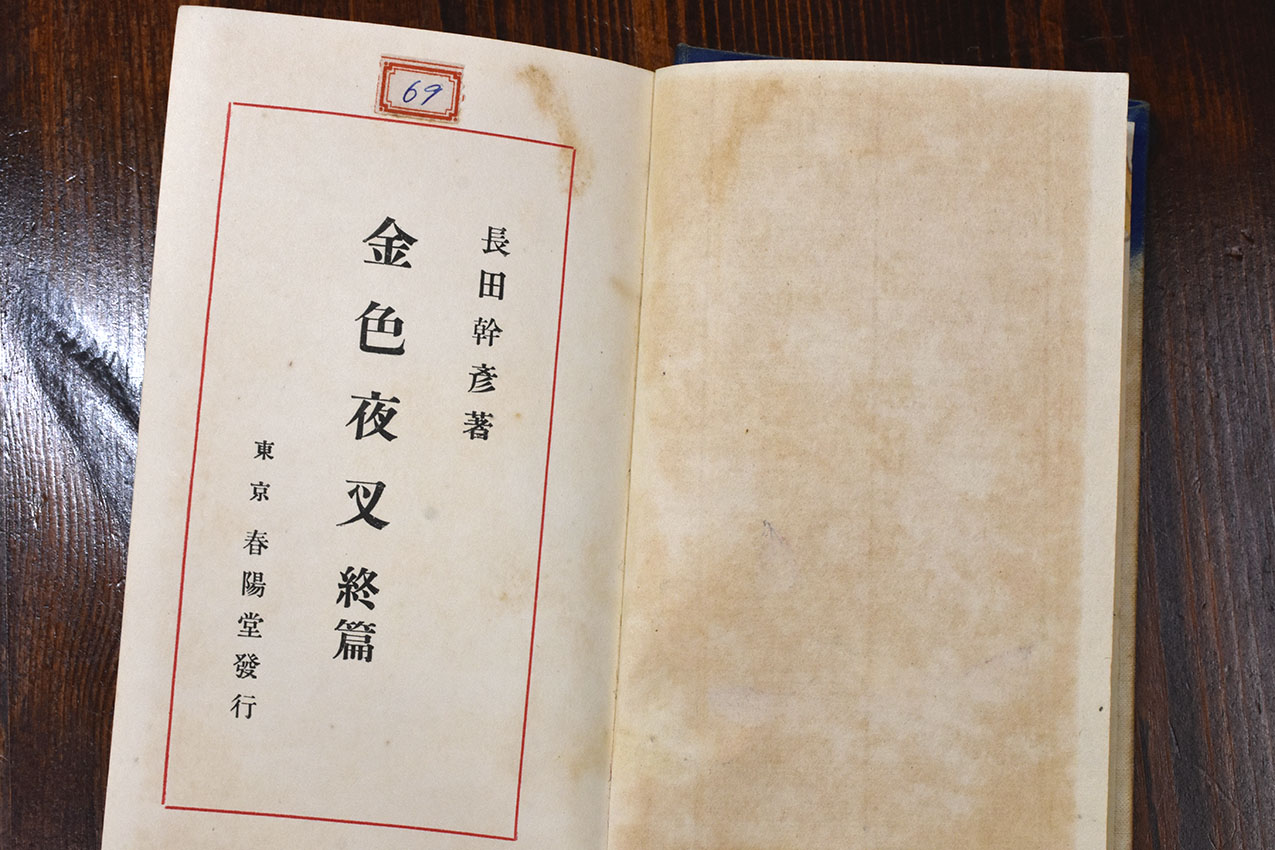 69
長田幹彥著
金色夜叉終篇
東京 春陽堂發行